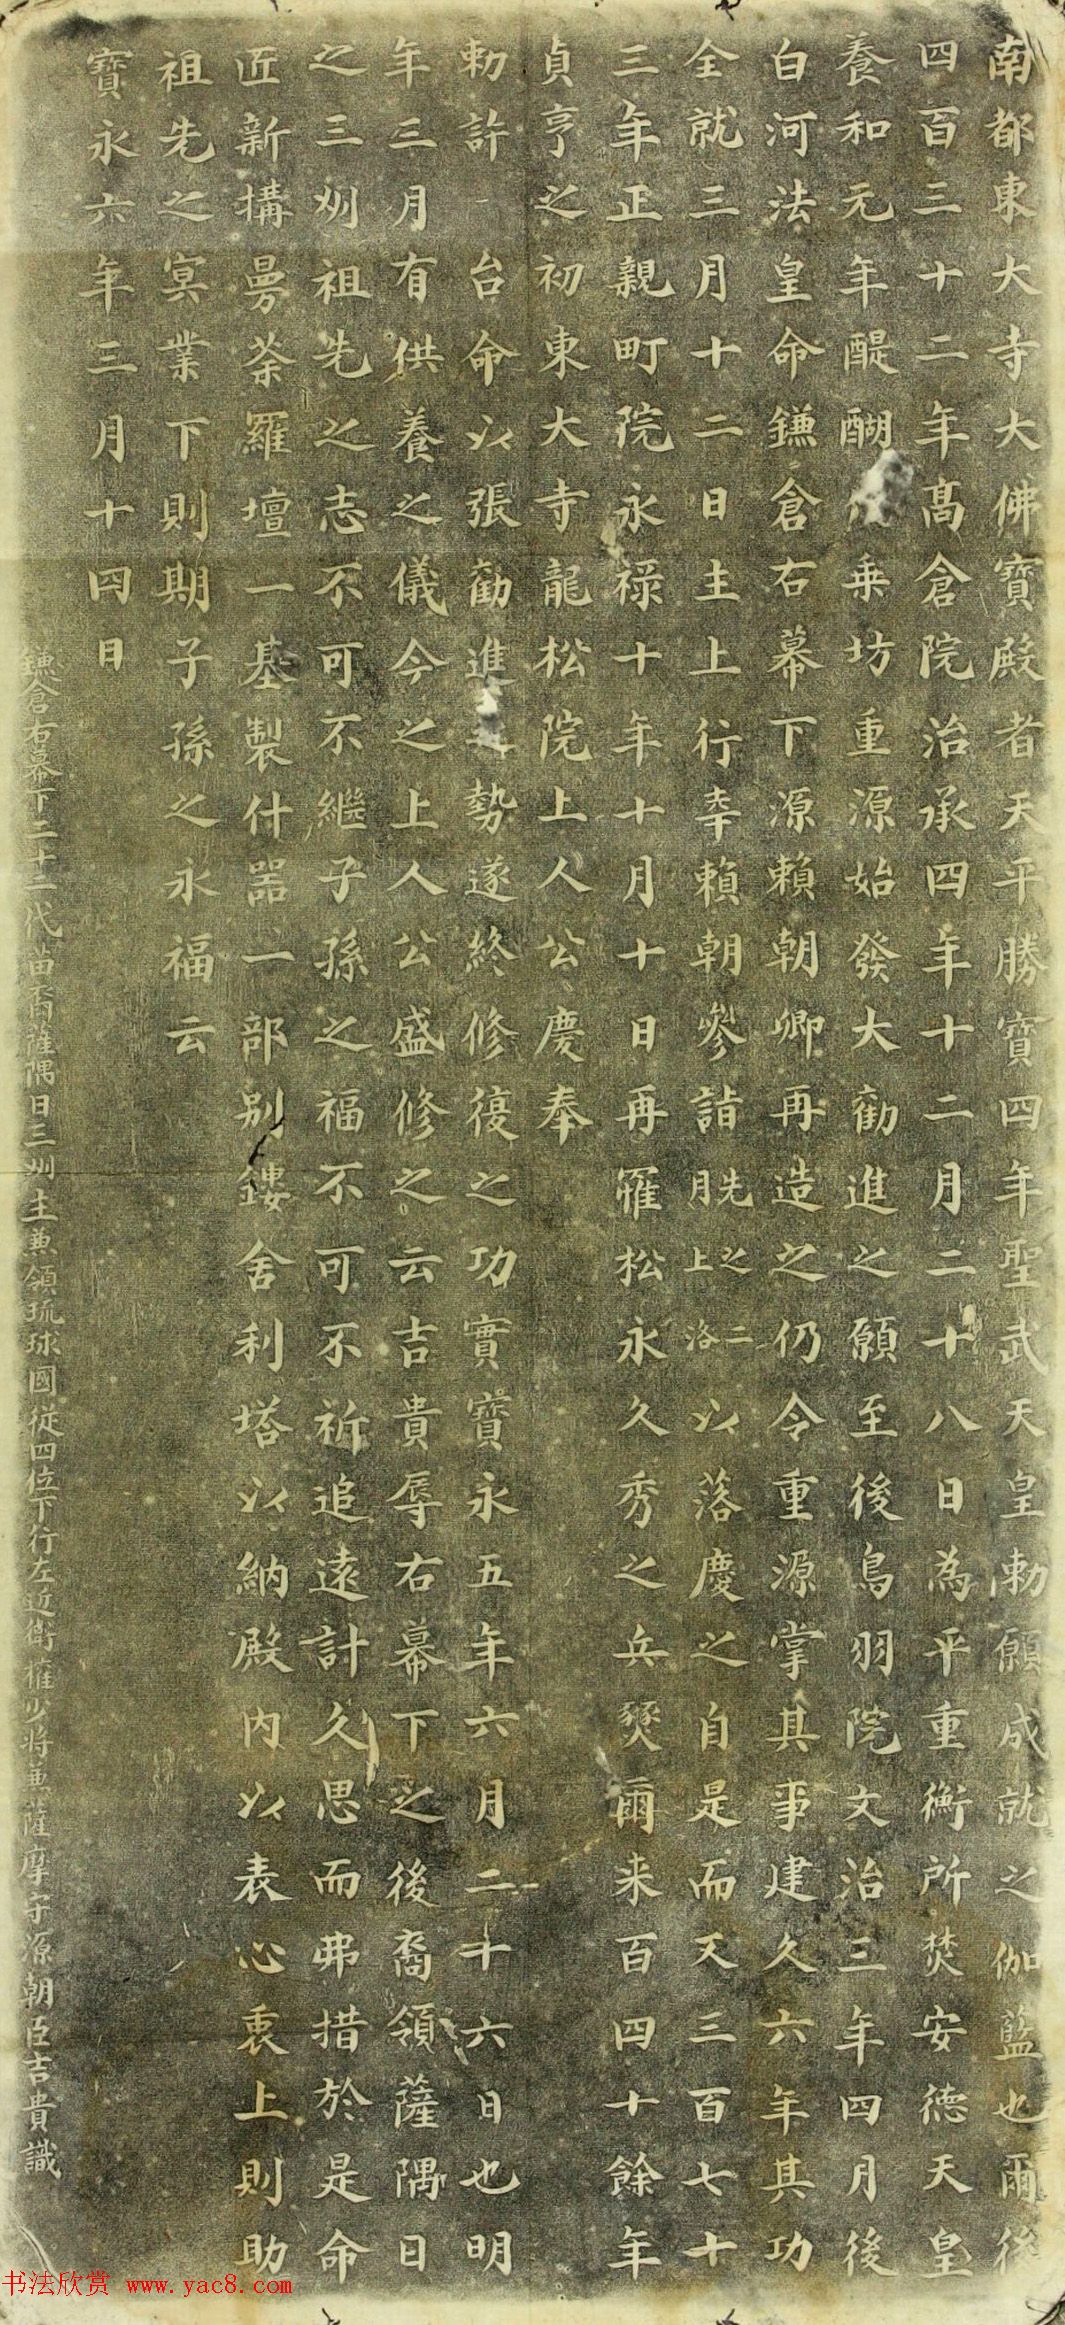 南都東大寺大佛寶殿者天平勝寶四年聖武天皇勅願成就之伽藍也爾後
四百三十二年髙倉院治承四年十二月二十八日為平重衡所焚安徳天皇
養和元年醍醐乗坊重源始發大勸進之願至後鳥羽院文治三年四月後
白河法皇命鎌倉右幕下源賴朝卿再造之仍令重源掌其事建久六年其功
全就三月十二日主上行幸賴朝參詣先之二月上洛以落慶之自是而又三百七十
三年正親町院永禄十年十月十日再罹松永久秀之兵燹爾来百四十餘年
貞享之初東大寺龍松院上人公慶奉
勅許台命以張勸進勢遂終修復之功實寶永五年六月二十六日也明
年三月有供養之儀今之上人公盛修之云吉貴辱右幕下之後裔領薩隅日
之三州祖先之志不可不繼子孫之福不可不祈追遠計久思而弗措於是命
匠新搆曼荼羅壇一基製什器一部别鏤舍利塔以納殿内以表心衷上則助
祖先之冥業下則期子孫之永福云
寶永六年三月十四日
鎌倉右幕下二十二代苗裔薩隅日三州主兼領琉球國従四位下行左近衛權少將兼薩摩守源朝臣吉貴識
书法欣赏 www.yac8.com